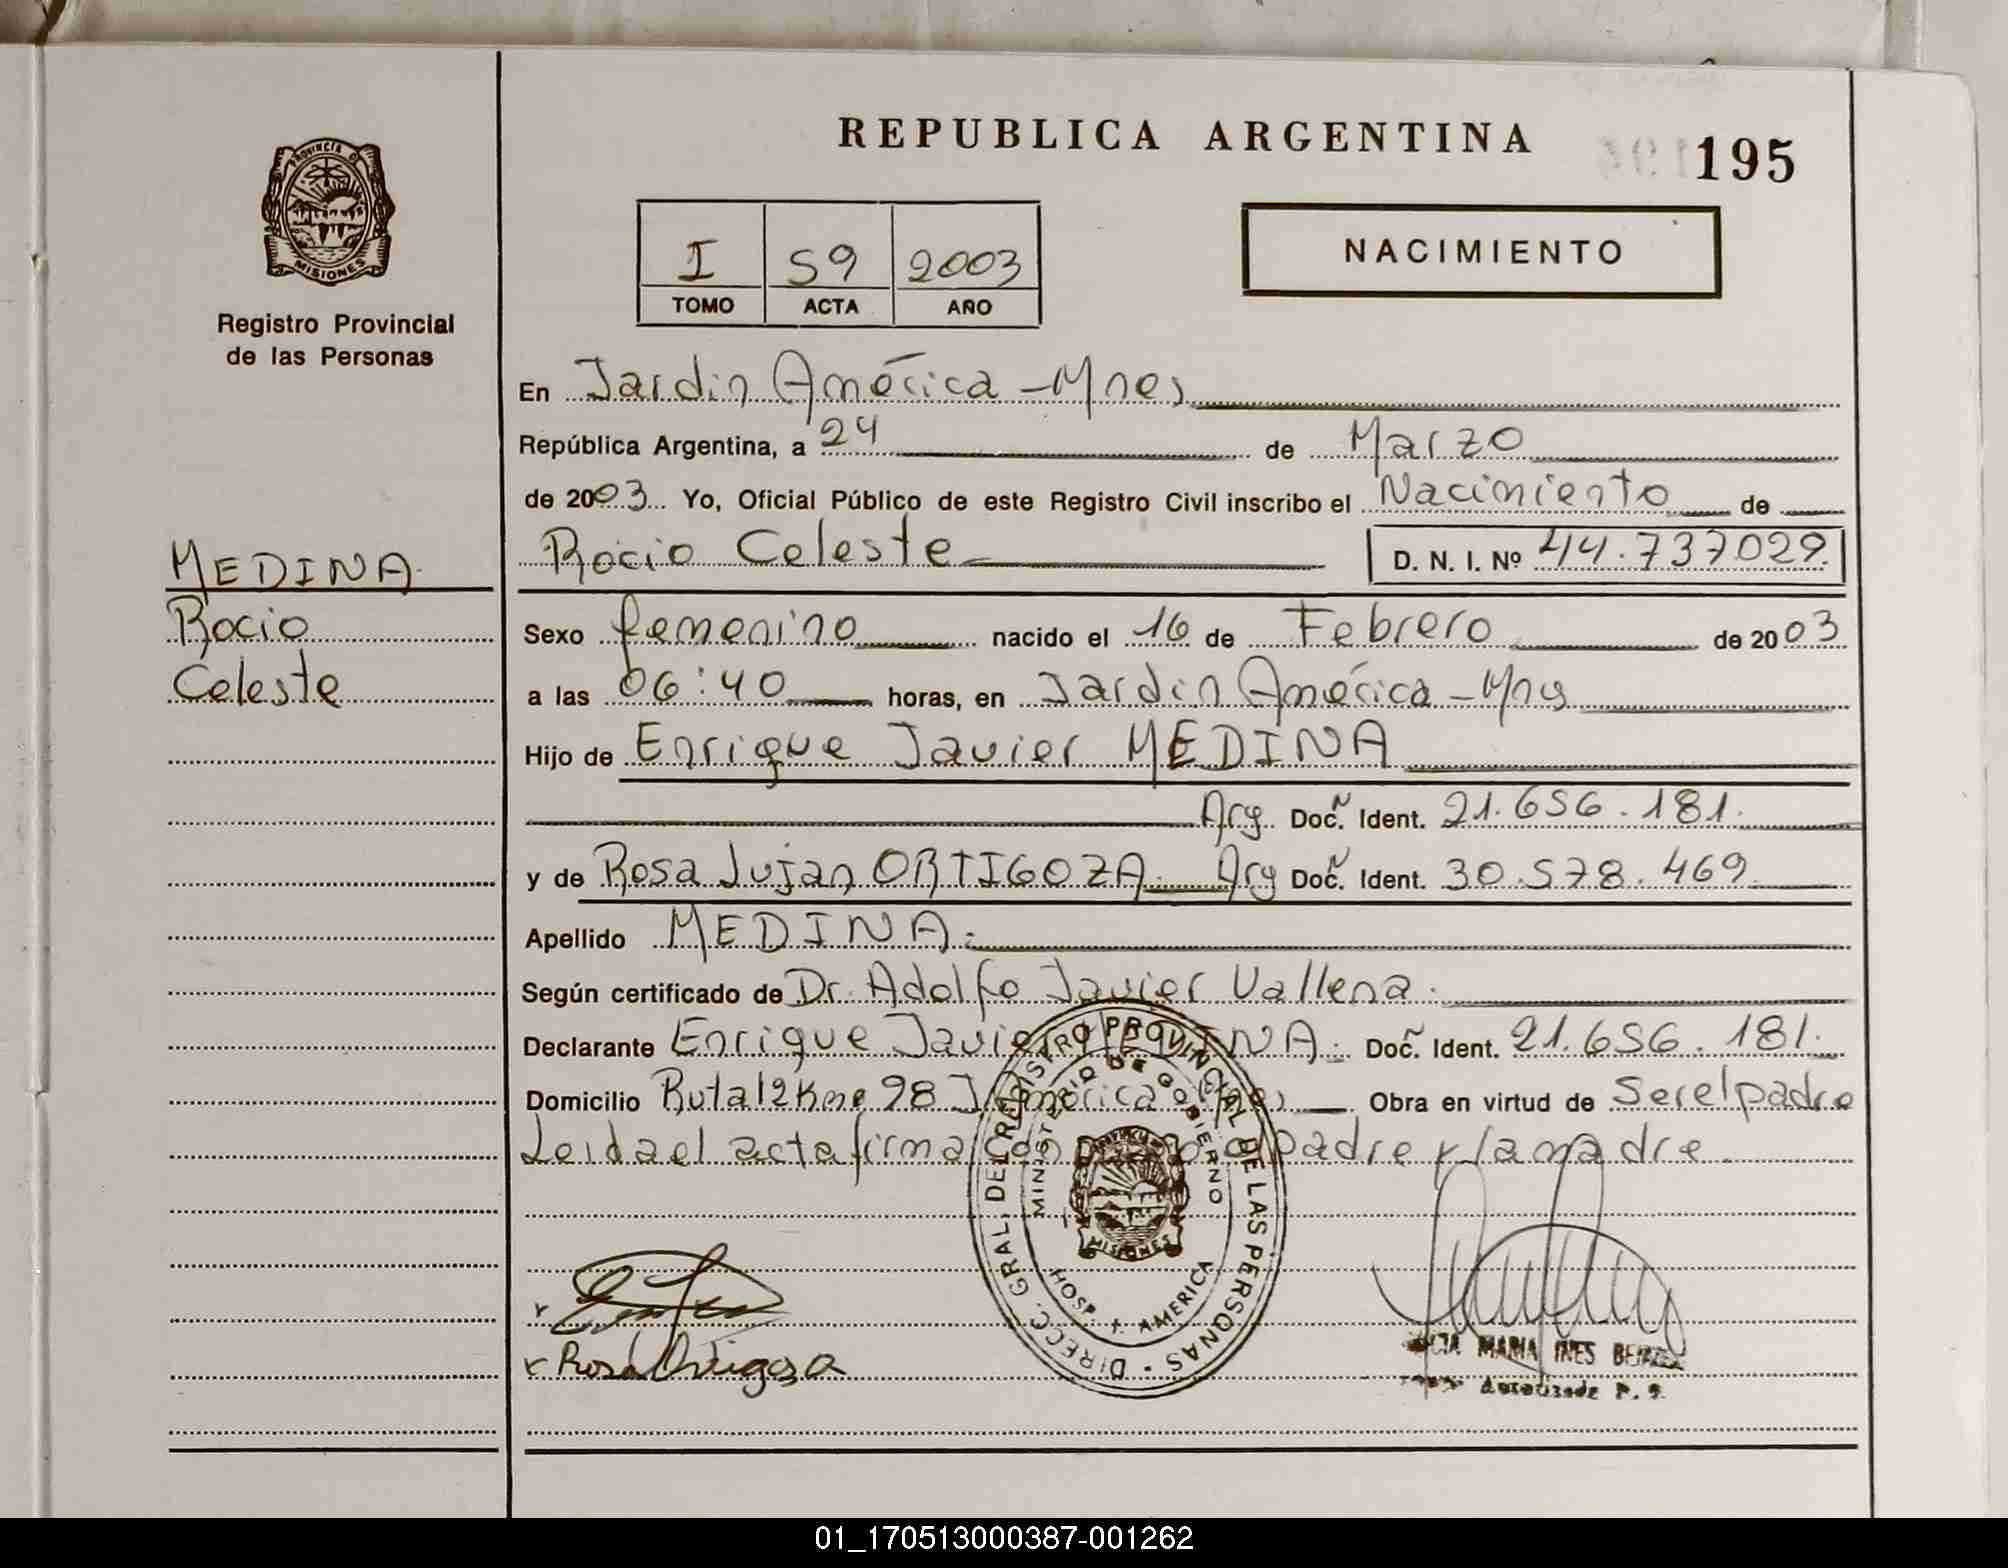 REPUBLICA ARGENTINA
195
PROVINCIA DE
MISIONES
Registro Provincial
de las Personas
I 59 2003
TOMO ACTA AÑO
NACIMIENTO
En Jardin América - Mnes
República Argentina, a 24 de Marzo
de 2003 Yo, Oficial Público de este Registro Civil inscribo el Nacimiento de
MEDINA
Rocio
Celeste
Rocio Celeste D. N. I. Nº 44.737029.
Sexo femenino nacido el 16 de Febrero de 2003
a las 06:40 horas, en Jardin América - Mnes
Hijo de Enrique Javier MEDINA
Arg. Doc. Ident. 21.656.181.
y de Rosa Lujan ORTIGOZA. Arg Doc. Ident. 30.578.469
Apellido MEDINA.
Según certificado de Dr. Adolfo Javier Vallena.
Declarante Enrique Javier MEDINA. Doc. Ident. 21.656.181.
Domicilio Ruta 12 Km 98 J. América Obra en virtud de Ser el padre
Leida el acta firma con el padre y la madre
DIRECC. GRAL. DEL REGISTRO PROVINCIAL DE LAS PERSONAS
MINISTERIO DE GOBIERNO
MISIONES
HOSP. J. AMERICA
Rosa Ortigoza
MARIA INES
Autorizada P. S.
01_170513000387-001262